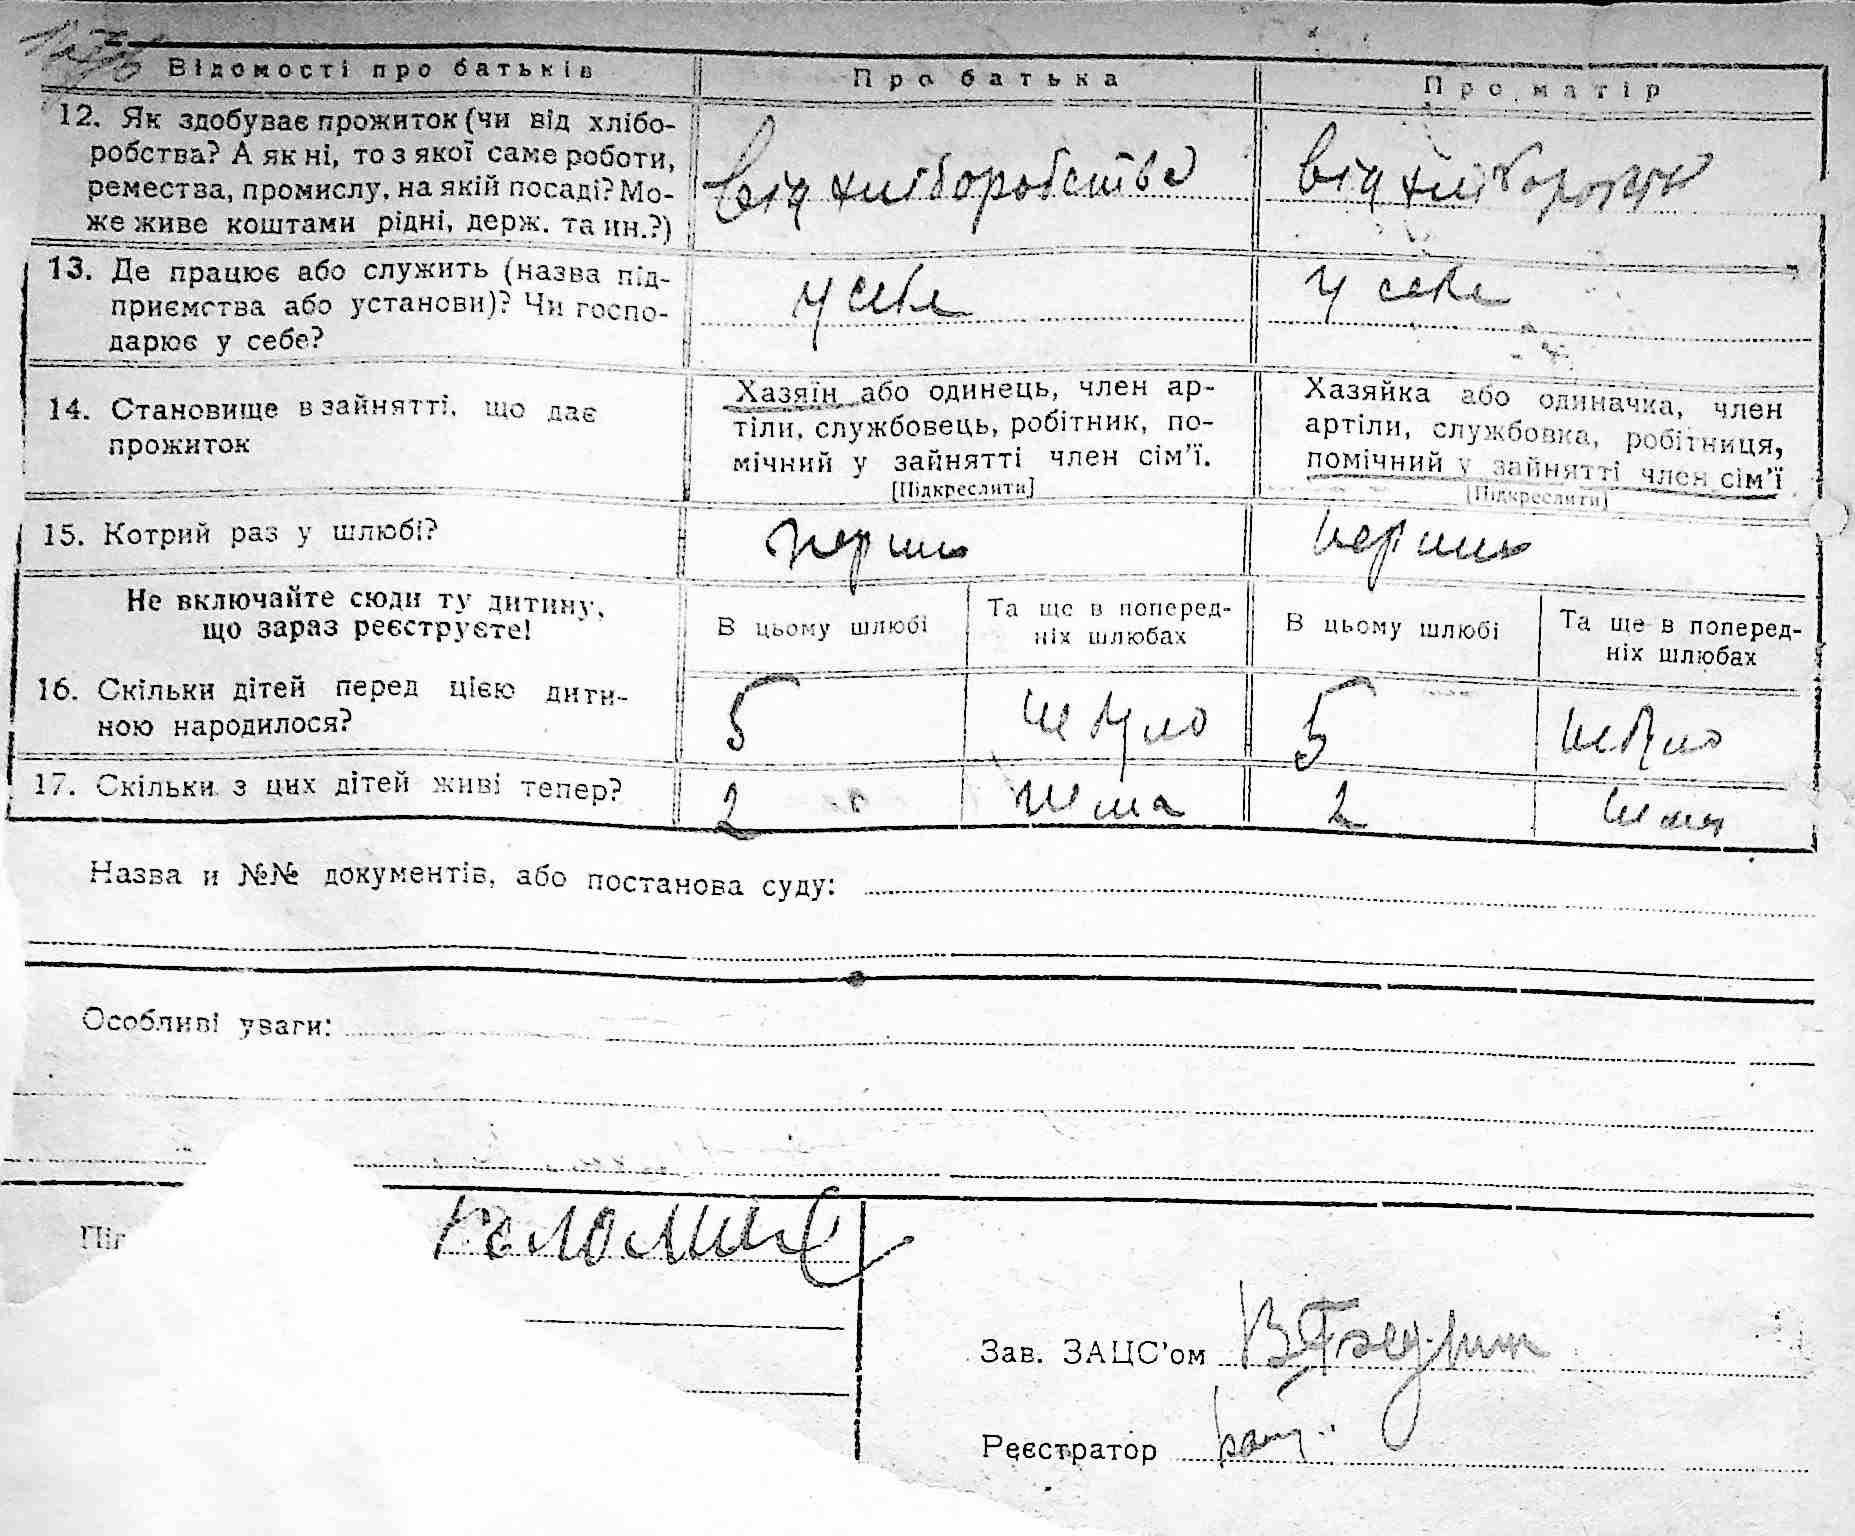 Відомості про батьків Про батька Про матір
12. Як здобуває прожиток (чи від хлібо-
робства? А як ні, то з якої саме роботи,
ремества, промислу, на якій посаді? Мо-
же живе коштами рідні, держ. та ин.?)
від хліборобства від
13. Де працює або служить (назва під-
приємства або установи)? Чи госпо-
дарює у себе?
у себе у себе
14. Становище в зайнятті, що дає
прожиток
Хазяїн або одинець, член ар-
тіли, службовець, робітник, по-
мічний у зайнятті член сім'ї.
[Підкреслити]
Хазяйка або одиначка, член
артіли, службовка, робітниця,
помічний у зайнятті член сім'ї
[Підкреслити]
15. Котрий раз у шлюбі?
перший перший
Не включайте сюди ту дитину,
що зараз реєструєте!
В цьому шлюбі
Та ще в поперед-
ніх шлюбах
В цьому шлюбі
Та ще в поперед-
ніх шлюбах
16. Скільки дітей перед цією дити-
ною народилося?
5 не було 5 не було
17. Скільки з цих дітей живі тепер?
2 нема 2 нема
Назва и №№ документів, або постанова суду:
Особливі уваги:
Зав. ЗАЦС'ом
Реєстратор